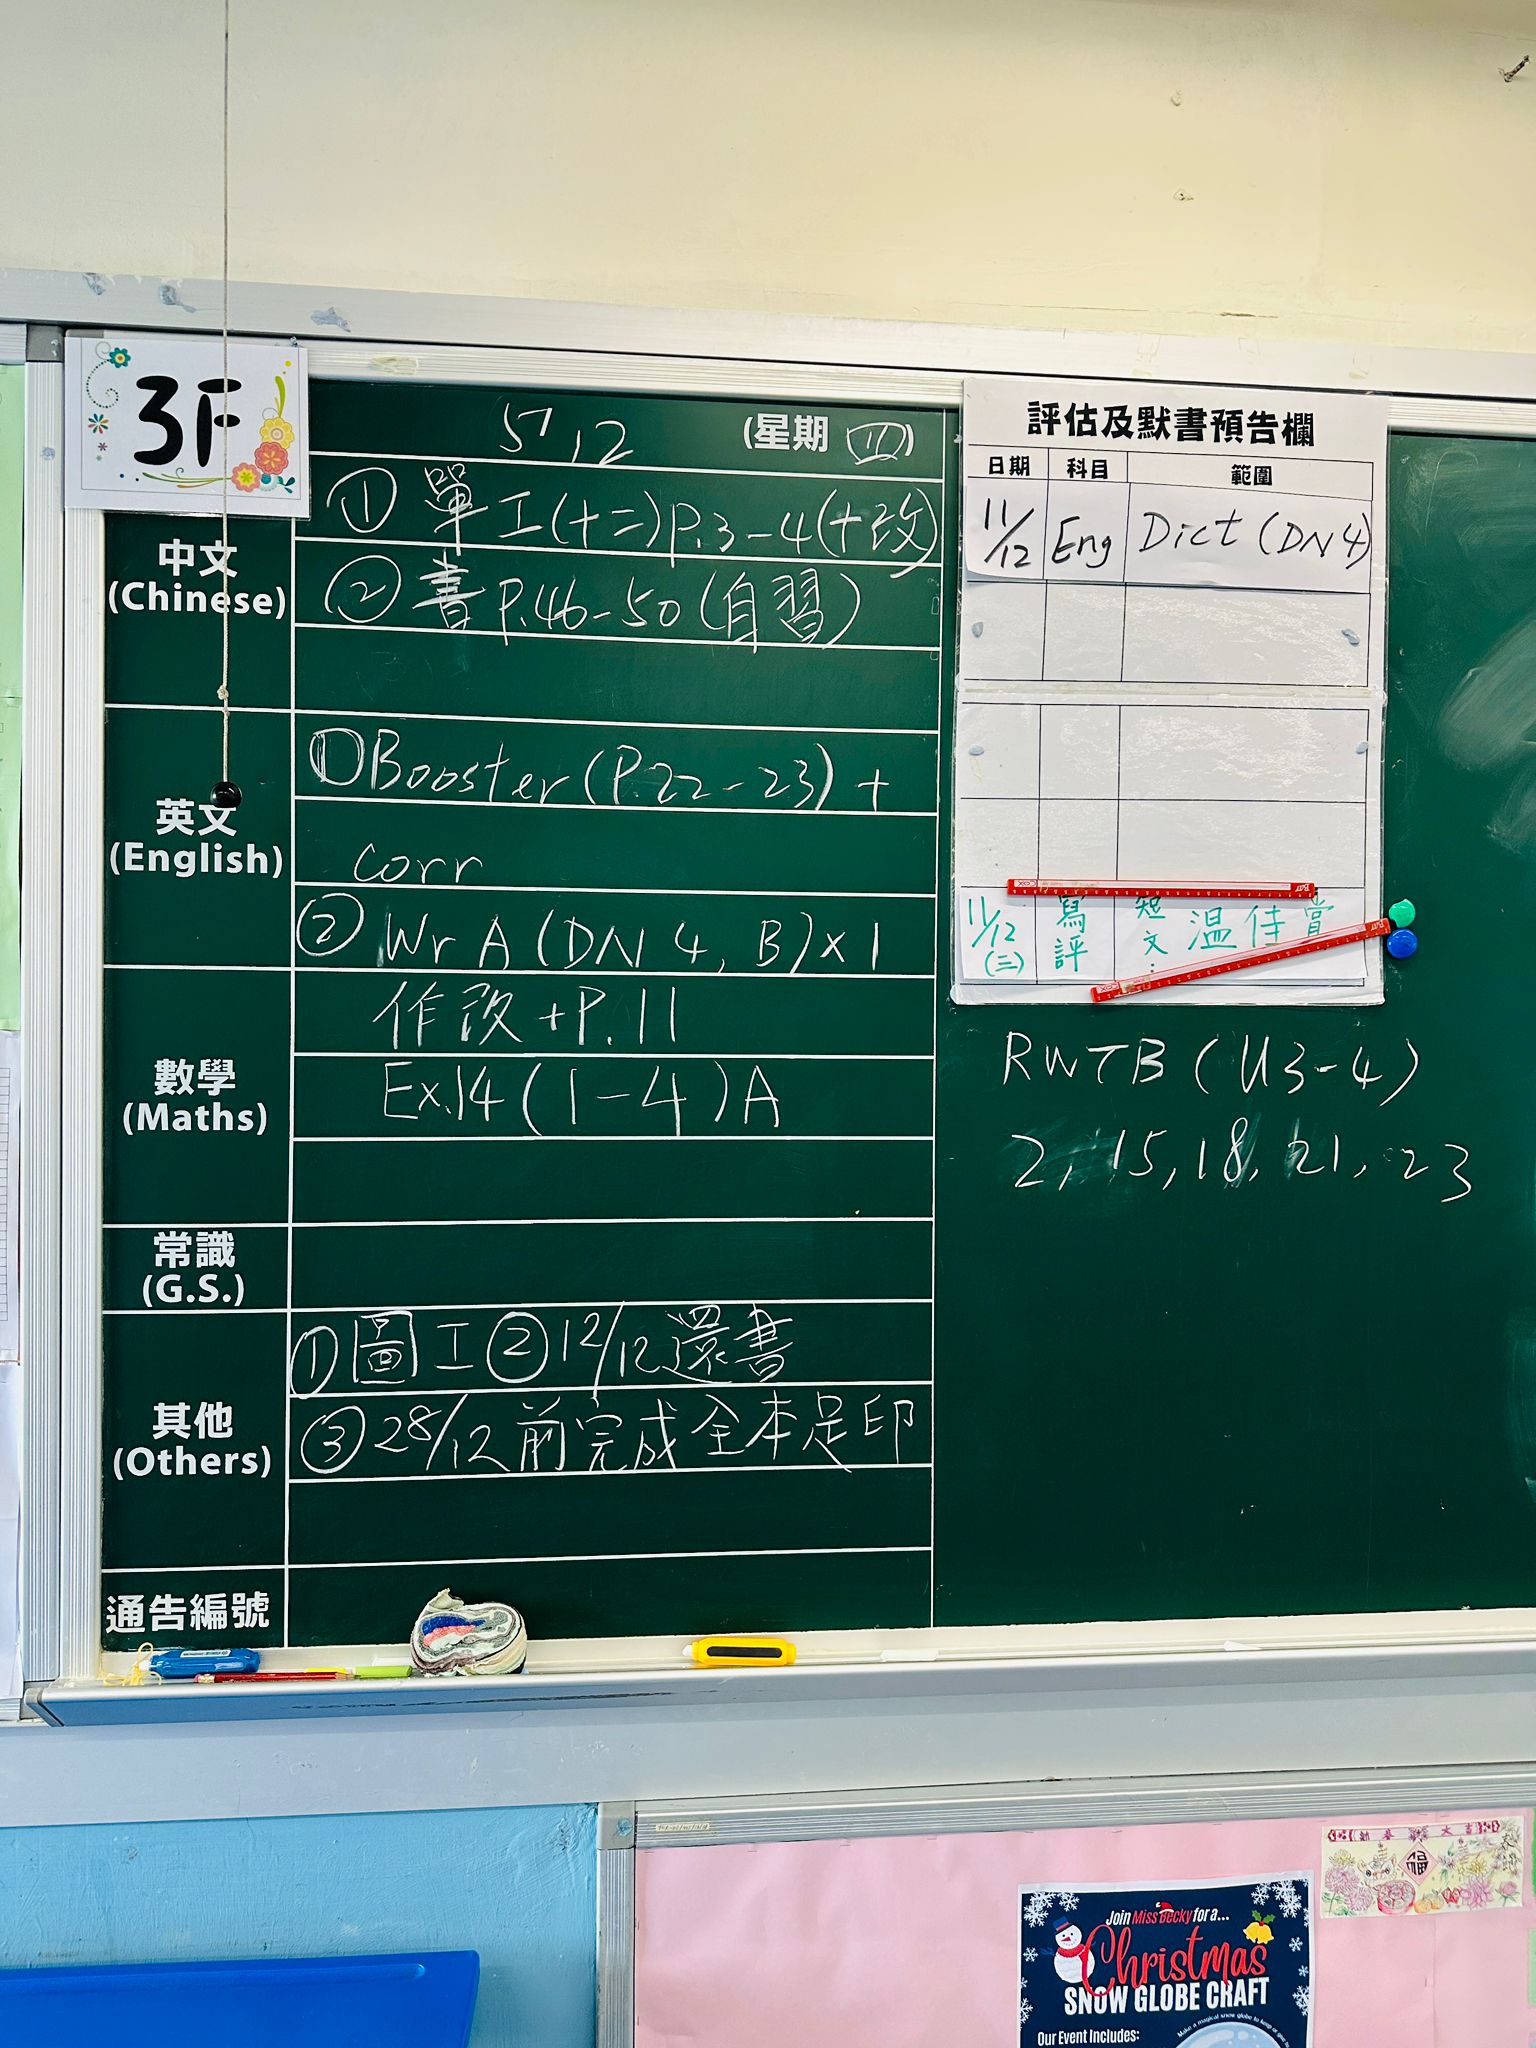 3F
5,12 (星期四)
中文
(Chinese)
① 單工(十二)P.3-4(+改)
② 書P.46-50(自習)
英文
(English)
① Booster (P.22-23) +
corr
② Wr A (DN 4, B) x 1
數學
(Maths)
作改 + P.11
Ex.14 (1-4) A
常識
(G.S.)
其他
(Others)
① 圖工 ② 12/12 還書
③ 28/12 前完成全本足印
通告編號
評估及默書預告欄
日期 科目 範圍
11/12 Eng Dict (DN 4)
11/12 (三) 寫評 短文: 溫
RWTB (U3-4)
2, 15, 18, 21, 23
Join Miss Becky for a...
Christmas
SNOW GLOBE CRAFT
Our Event Includes:
福